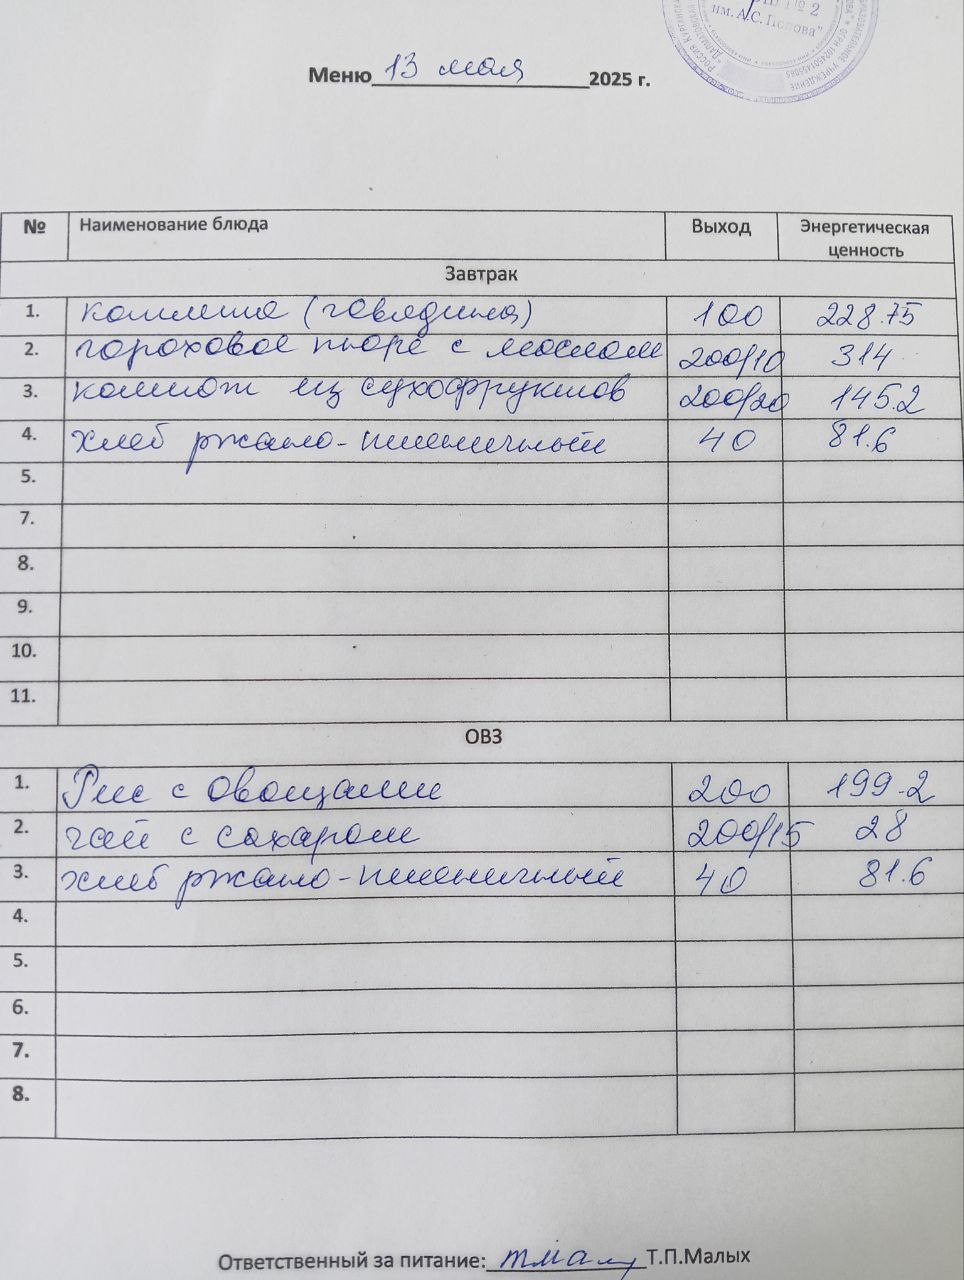 № 2
им. А.С. Попова"
Меню 13 мая 2025 г.
№ Наименование блюда Выход Энергетическая ценность
Завтрак
1. котлета (говядина) 100 228.75
2. гороховое пюре с маслом 200/10 314
3. компот из сухофруктов 200/20 145.2
4. хлеб ржано-пшеничный 40 81.6
5.
7.
8.
9.
10.
11.
ОВЗ
1. Рис с овощами 200 199.2
2. чай с сахаром 200/15 28
3. хлеб ржано-пшеничный 40 81.6
4.
5.
6.
7.
8.
Ответственный за питание: Т.П.Малых